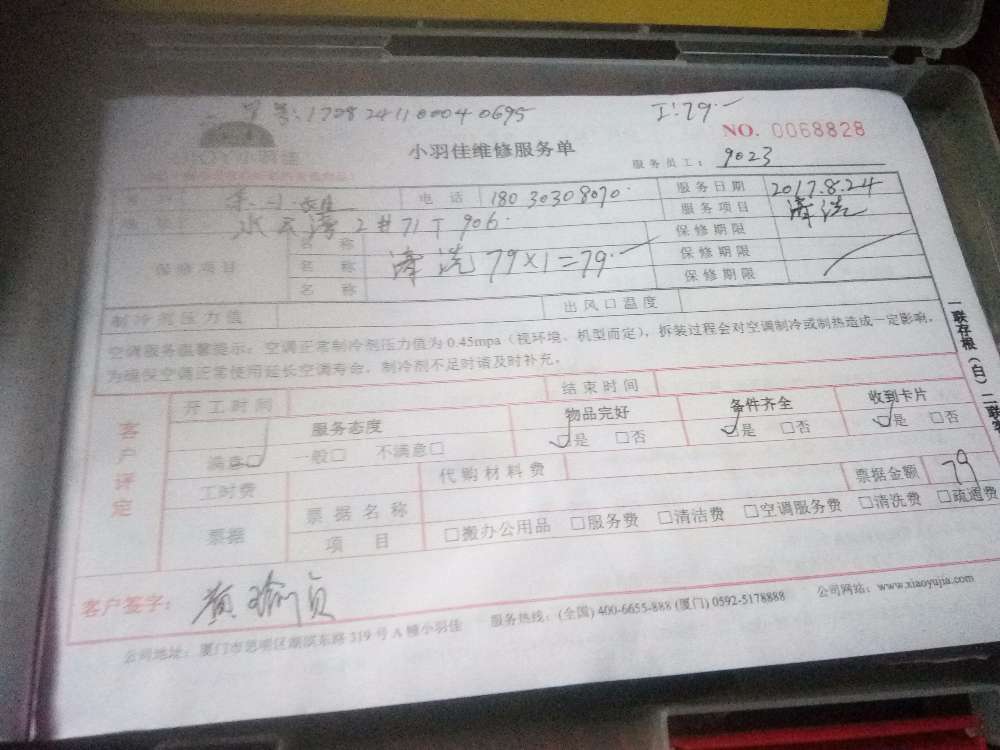 号:170824110040695 工:79.一
小羽佳维修服务单 NO. 0068828
服务员工: 9023
电 话 18030308070 服务日期 2017.8.24
水 2#71 906 服务项目 清洗
名 称 保修期限
保修项目 名 称 清洗 79×1=79.一 保修期限
名 称 保修期限
制冷剂压力值 出风口温度
空调服务温馨提示:空调正常制冷剂压力值为0.45mpa(视环境、机型而定),拆装过程会对空调制冷或制热造成一定影响,
为确保空调正常使用延长空调寿命,制冷剂不足时请及时补充。
一联存根(白)二联
客户评定
开工时间 结束时间
服务态度 物品完好 备件齐全 收到卡片
满意□ 一般□ 不满意□ □是 □否 □是 □否 □是 □否
工时费 代购材料费 票据金额 79
票据 票据名称
项 目 □搬办公用品 □服务费 □清洁费 □空调服务费 □清洗费 □疏通费
客户签字: 颜瑜贞
公司地址:厦门市思明区湖滨东路319号A幢小羽佳 服务热线:(全国)400-6655-888 (厦门)0592-5178888 公司网站:www.xiaoyujia.com